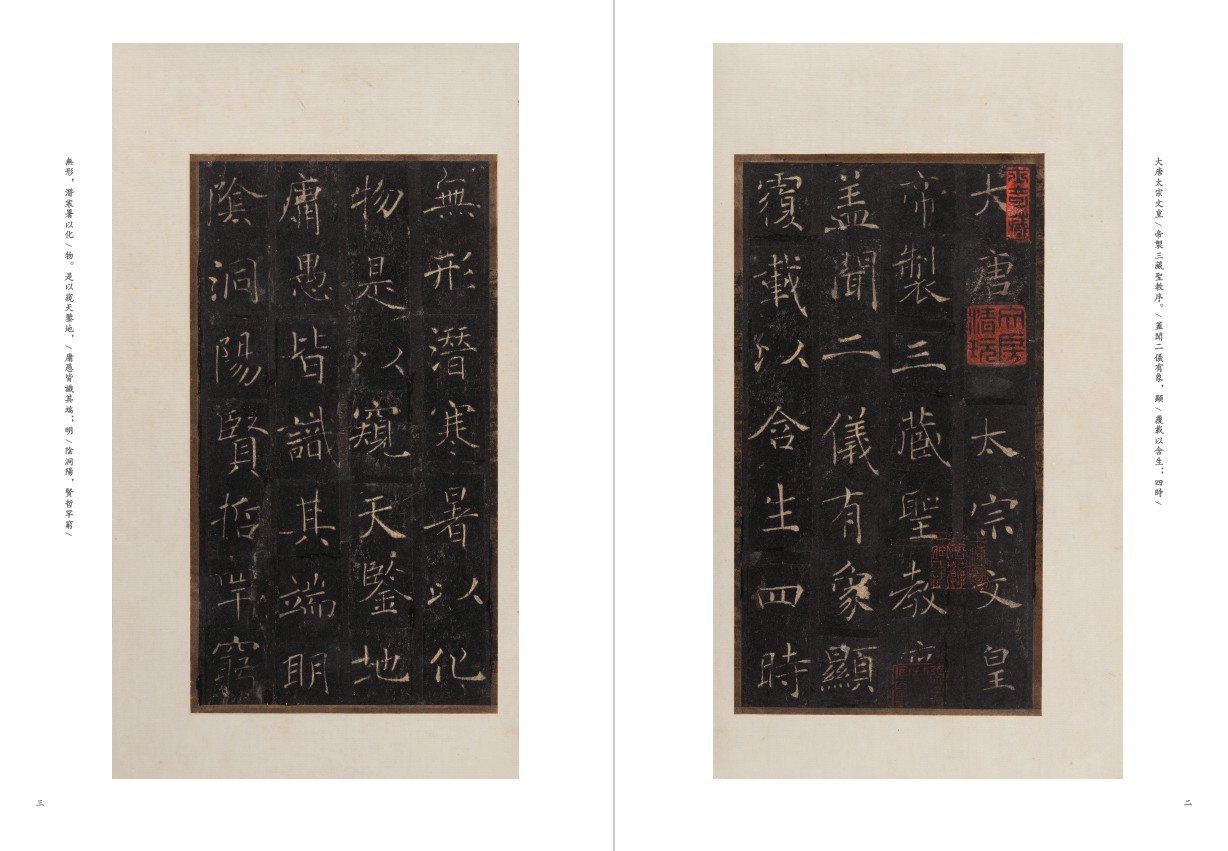 大唐太宗文皇/帝製三藏聖教序。/蓋聞二儀有象，顯/覆載以含生；四時/
大唐太宗文皇
帝製三藏聖教序
蓋聞二儀有象顯
覆載以含生四時
二
無形潛寒暑以化
物是以窺天鑒地
庸愚皆識其端明
陰洞陽賢哲罕窮
無形，潛寒暑以化/物。是以窺天鑒地，/庸愚皆識其端；明/陰洞陽，賢哲罕窮/
三